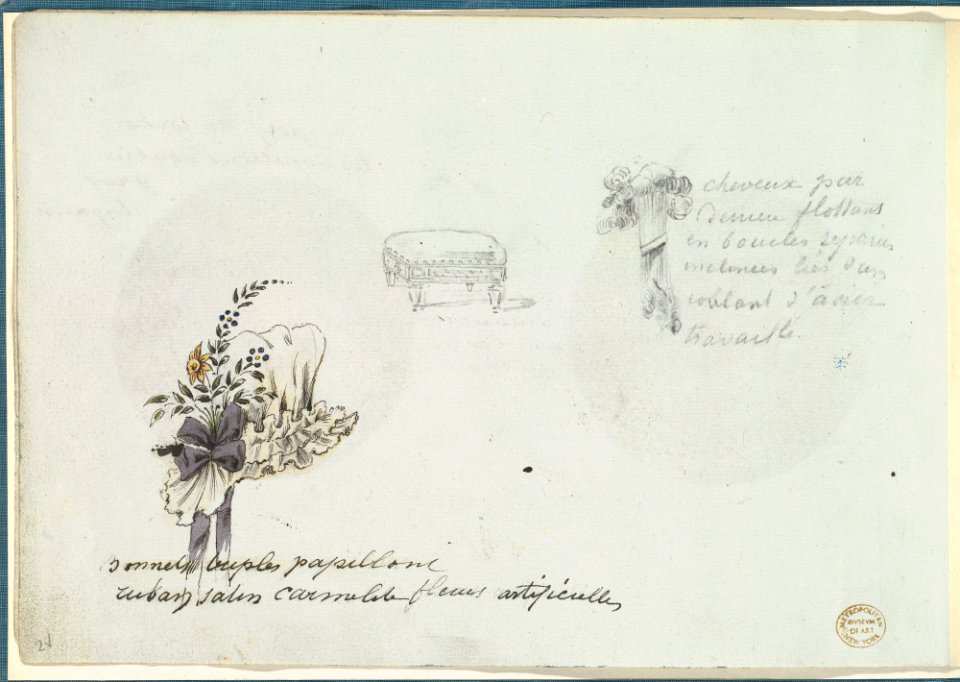 cheveux par
derriere flottans
en boucles separées
liés d'un
d'acier
travaillé.
bonnet papillons
rubans satin carmelite fleurs artificielles
METROPOLITAN
MUSEUM
OF ART
NEW YORK